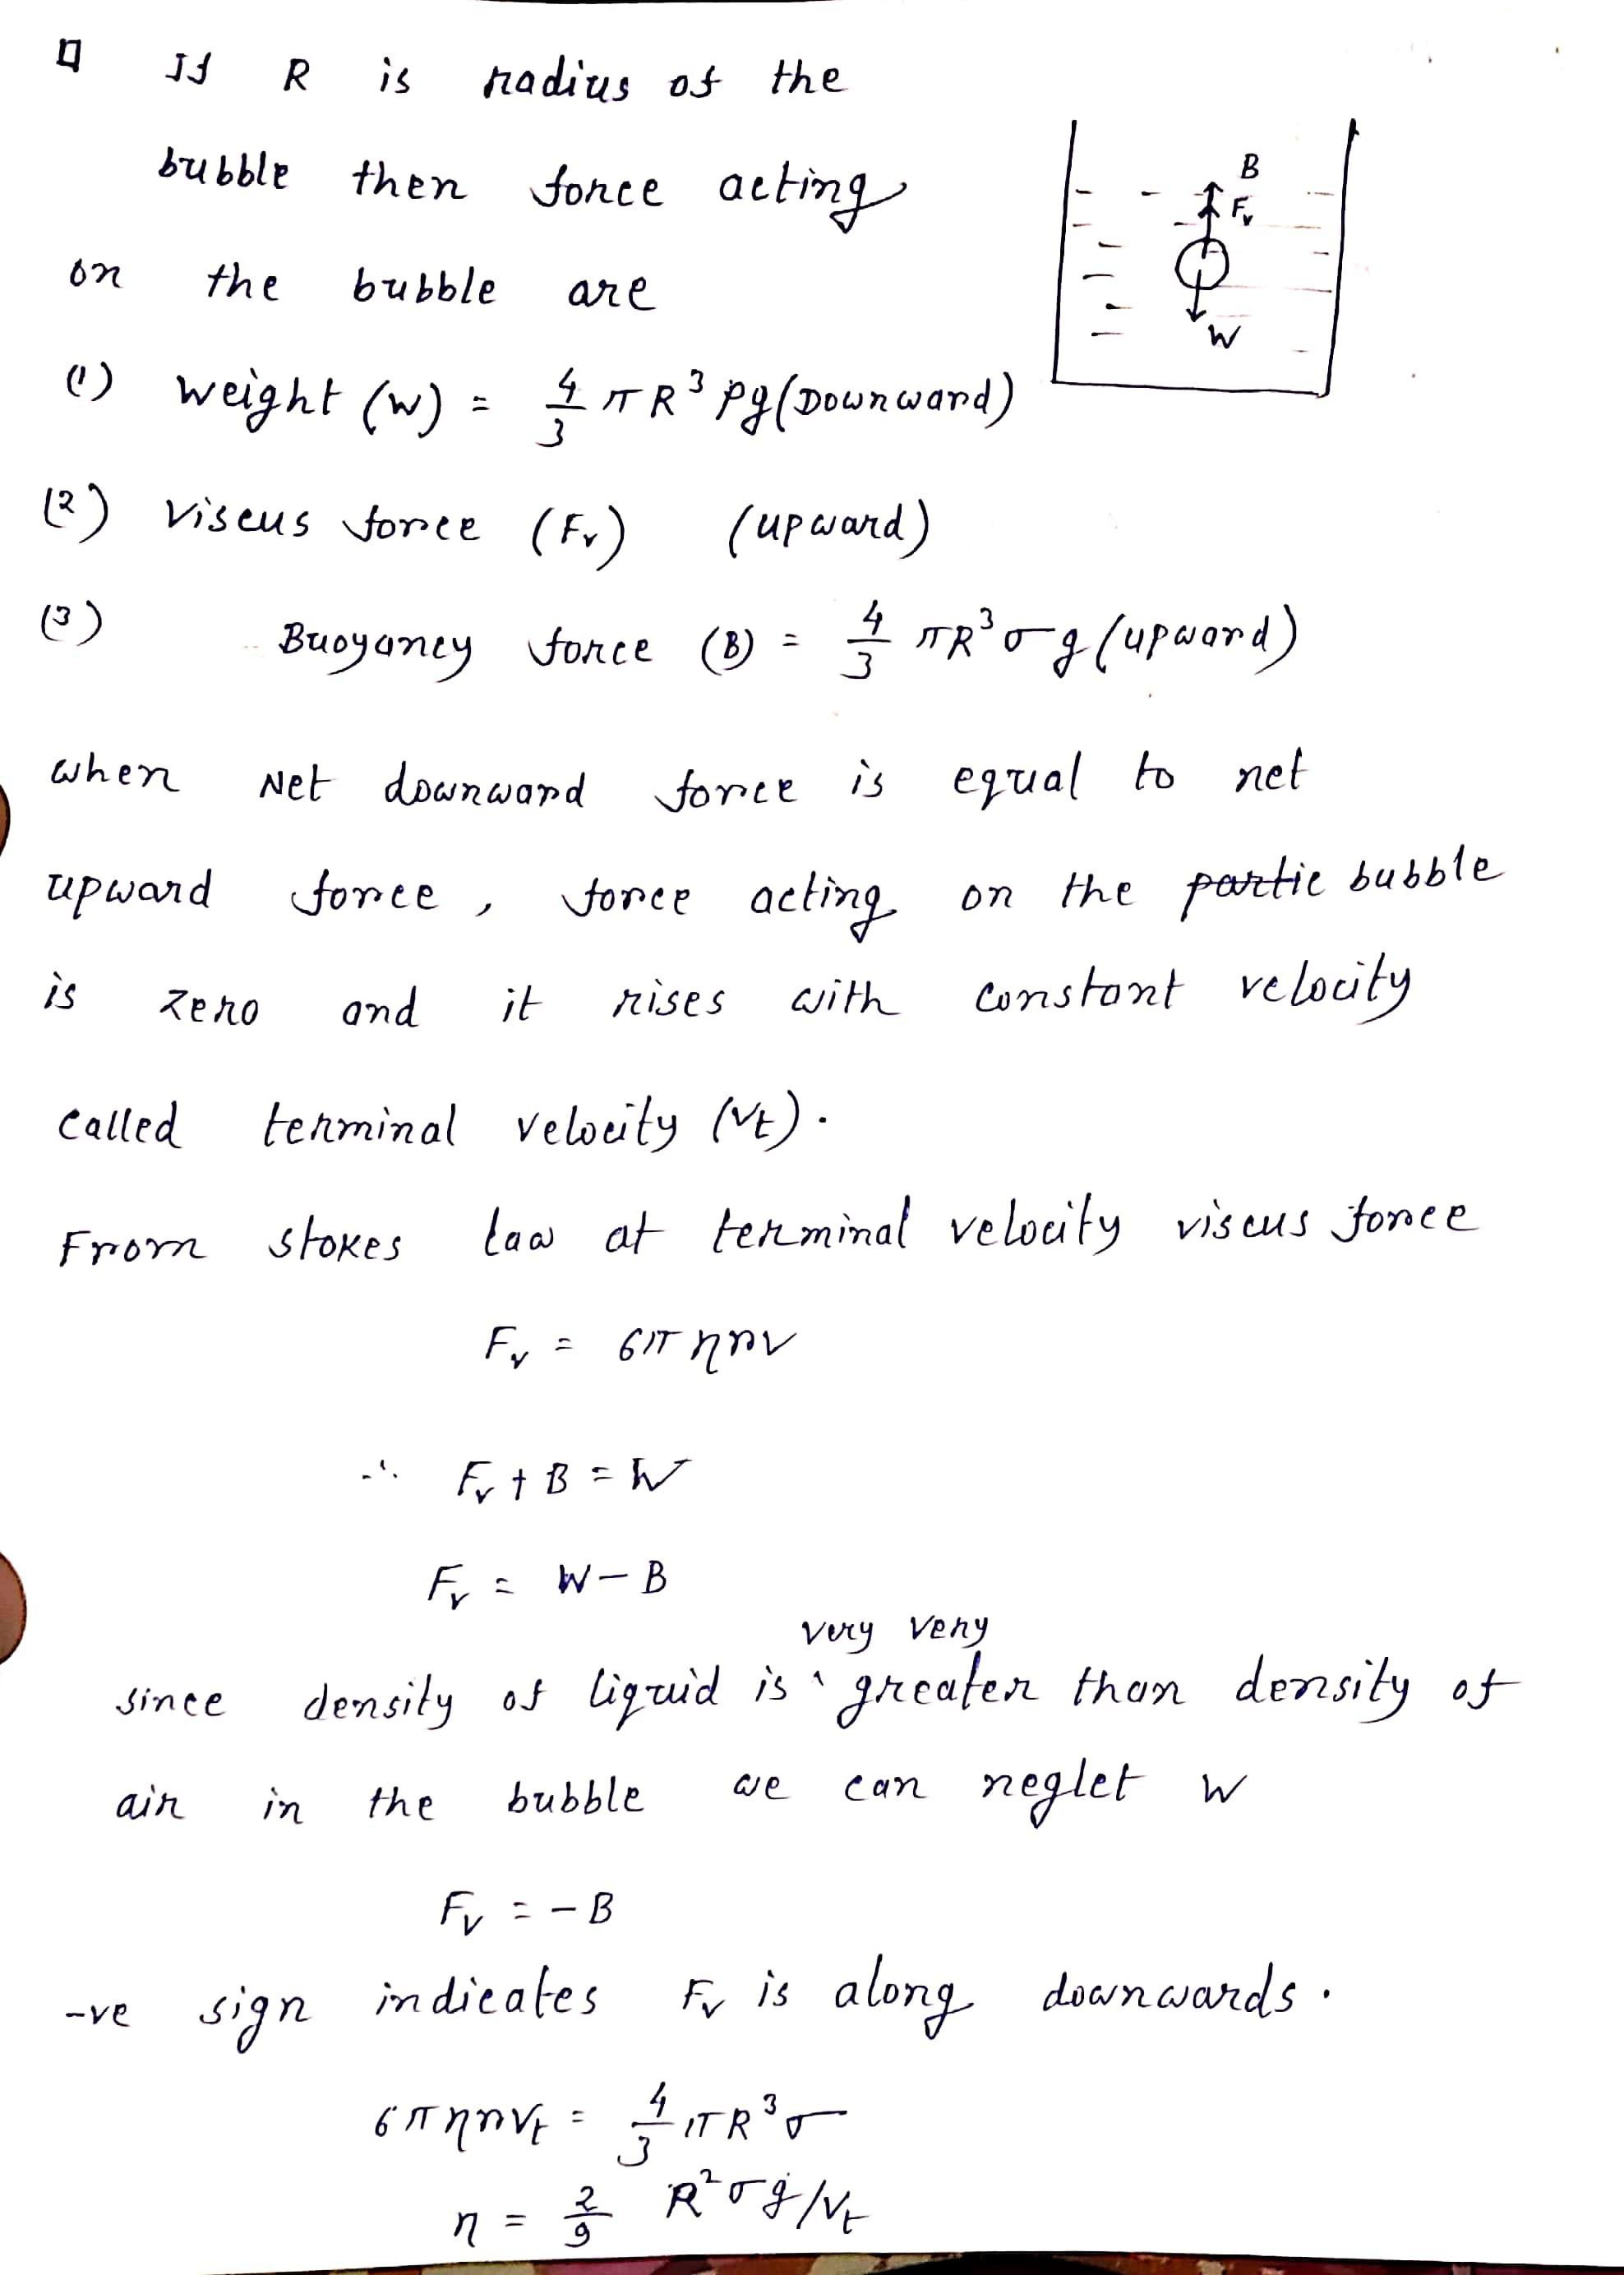 If R is radius of the
B
Fv
bubble then force acting
on the bubble are
W
(1) weight (W) = 4/3 πR³ρg (Downward)
(2) viscus force (Fv) (upward)
(3) Buoyancy force (B) = 4/3 πR³σg (upward)
when Net downward force is equal to net
upward force, force acting on the partic bubble
is zero and it rises with constant velocity
called terminal velocity (vt).
From stokes law at terminal velocity viscus force
Fv = 6πηrv
∴ Fv + B = W
Fv = W - B
very very
since density of liquid is ^ greater than density of
air in the bubble we can neglet W
Fv = -B
-ve sign indicates Fv is along downwards.
6πηrvt = 4/3 πR³σ
η = 2/9 R²σg/vt